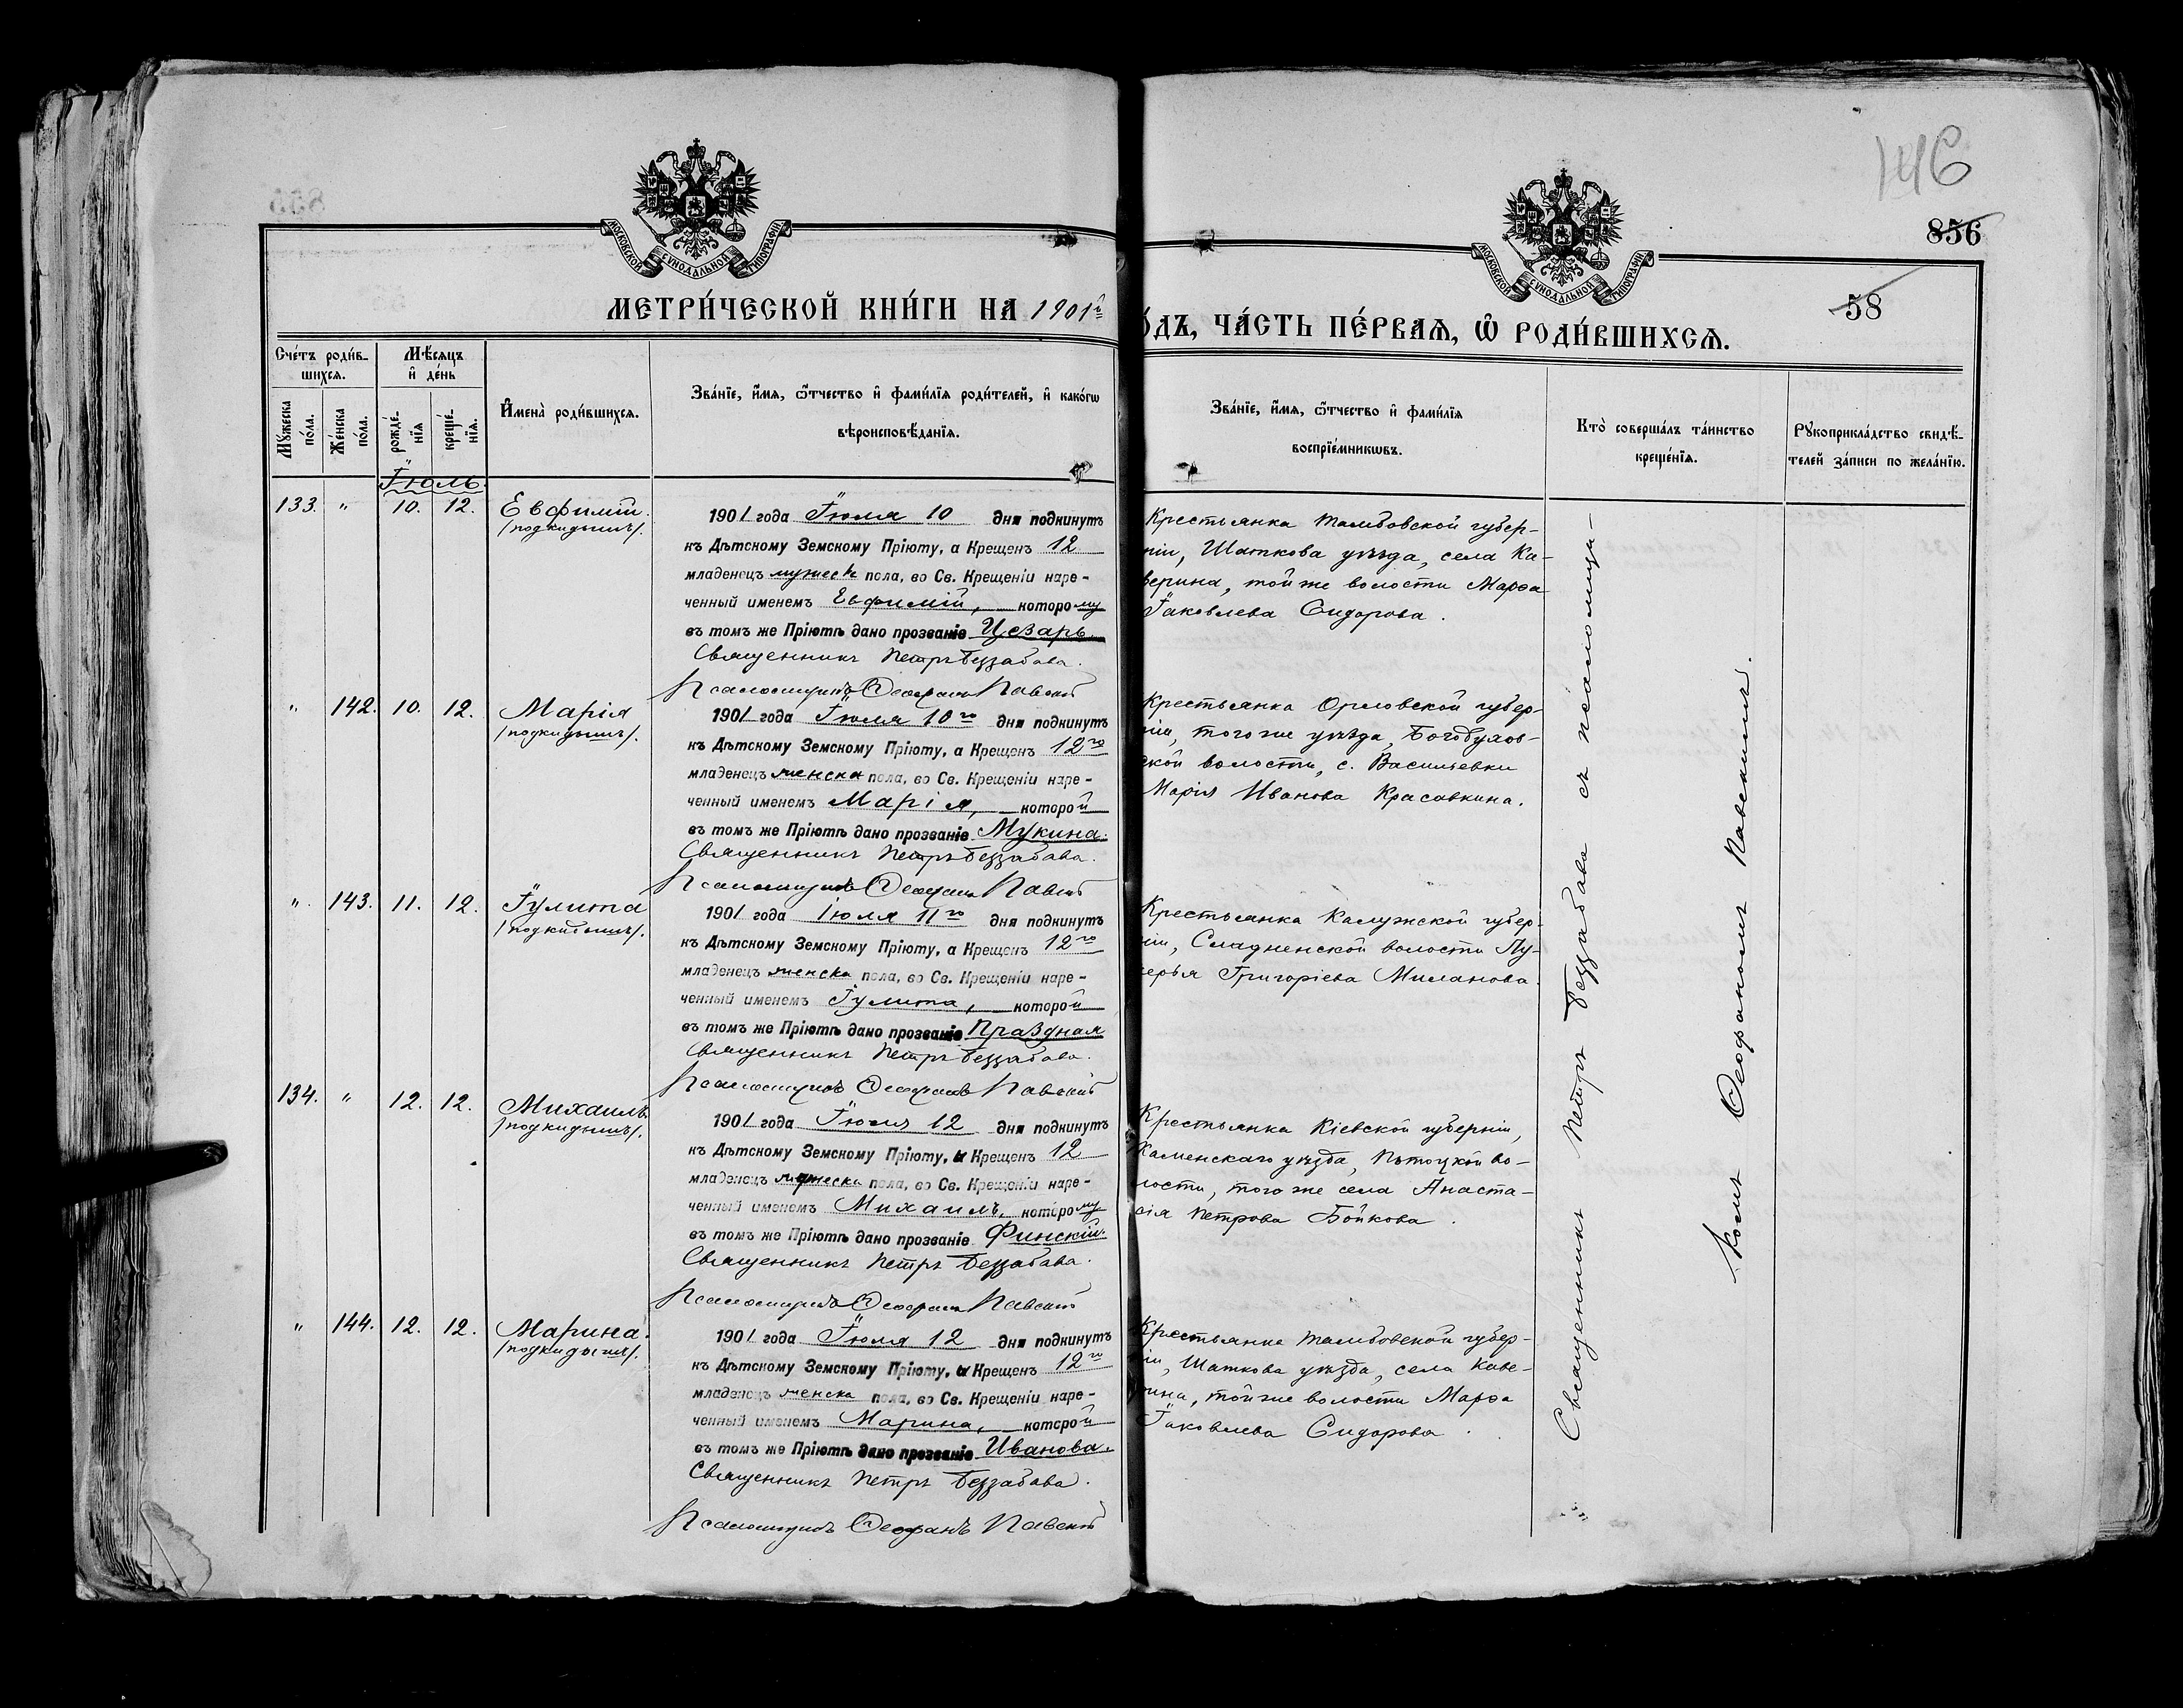 146
856
58
МОСКОВСКОЙ СУНОДАЛЬНОЙ ТИПОГРАФІИ
МЕТРИ́ЧЕСКОЙ КНИ́ГИ НА 1901й
МОСКОВСКОЙ СУНОДАЛЬНОЙ ТИПОГРАФІИ
О́ДЪ, ЧА́СТЬ ПЕ́РВАѦ, Ѽ РОДИ́ВШИХСѦ.
Сче́тъ роди́в-
шихсѧ.
Мѣ́сѧцъ
и҆ де́нь
Мꙋ́жеска
по́ла.
Же́нска
по́ла.
рожде́-
нїѧ
креще́-
нїѧ.
И҆мена̀ роди́вшихсѧ.
Зва́нїе, и҆́мѧ, ѻ҆́тчество и҆ фами́лїѧ роди́телей, и҆ како́гѡ
вѣроисповѣ́данїѧ.
Зва́нїе, и҆́мѧ, ѻ҆́тчество и҆ фами́лїѧ
воспрїе́мникѡвъ.
Кто̀ соверша́лъ та́инство
креще́нїѧ.
Рꙋкоприкла́дство свидѣ́-
телей за́писи по жела́нїю.
Іюль.
133. " 10. 12. Евфимій.
/подкидышъ/.
1901 года Іюля 10 дня подкинутъ
къ Дѣтскому Земскому Пріюту, а Крещенъ 12
младенецъ мужеск пола, во Св. Крещеніи наре-
ченный именемъ Евфимій, которому
въ томъ же Пріютѣ дано прозваніе Цезарь.
Священникъ Петръ Беззабава.
Псаломщикъ Ѳеофанъ Павскій
Крестьянка Тамбовской губер-
ніи, Шаткова уѣзда, села Ка-
верина, той же волости Марѳа
Іаковлева Сидорова.
" 142. 10. 12. Марія
/подкидышъ/.
1901 года Іюля 10го дня подкинутъ
къ Дѣтскому Земскому Пріюту, а Крещенъ 12го
младенецъ женска пола, во Св. Крещеніи наре-
ченный именемъ Марія, которой
въ томъ же Пріютѣ дано прозваніе Мукина.
Священникъ Петръ Беззабава.
Псаломщикъ Ѳеофанъ Павскій
Крестьянка Орловской губер-
ніи, того же уѣзда, Богодухов-
ской волости, с. Васильевки
Марія Иванова Красавкина.
". 143. 11. 12. Іулита
/подкидышъ/.
1901 года Іюля 11го дня подкинутъ
къ Дѣтскому Земскому Пріюту, а Крещенъ 12го
младенецъ женска пола, во Св. Крещеніи наре-
ченный именемъ Іулита, которой
въ томъ же Пріютѣ дано прозваніе Праздная
Священникъ Петръ Беззабава.
Псаломщикъ Ѳеофанъ Павскій
Крестьянка Калужской губер-
ніи, Сладненской волости
Григоріева Миланова.
134. " 12. 12. Михаилъ.
/подкидышъ/.
1901 года Іюля 12 дня подкинутъ
къ Дѣтскому Земскому Пріюту, а Крещенъ 12
младенецъ мужеска пола, во Св. Крещеніи наре-
ченный именемъ Михаилъ, которому
въ томъ же Пріютѣ дано прозваніе Финскій.
Священникъ Петръ Беззабава.
Псаломщикъ Ѳеофанъ Павскій
Крестьянка Кіевской губерніи,
Каменскаго уѣзда, во-
лости, того же села Анаста-
сія Петрова Бойкова.
" 144. 12. 12. Марина.
/подкидышъ/.
1901 года Іюля 12 дня подкинутъ
къ Дѣтскому Земскому Пріюту, а Крещенъ 12го
младенецъ женска пола, во Св. Крещеніи наре-
ченный именемъ Марина, которой
въ томъ же Пріютѣ дано прозваніе Иванова.
Священникъ Петръ Беззабава.
Псаломщикъ Ѳеофанъ Павскій
Крестьянка Тамбовской губер-
ніи, Шаткова уѣзда, села Каве-
рина, той же волости Марѳа
Іаковлева Сидорова.
Священникъ Петръ Беззабава съ псаломщи-
комъ Ѳеофаномъ Павскимъ.